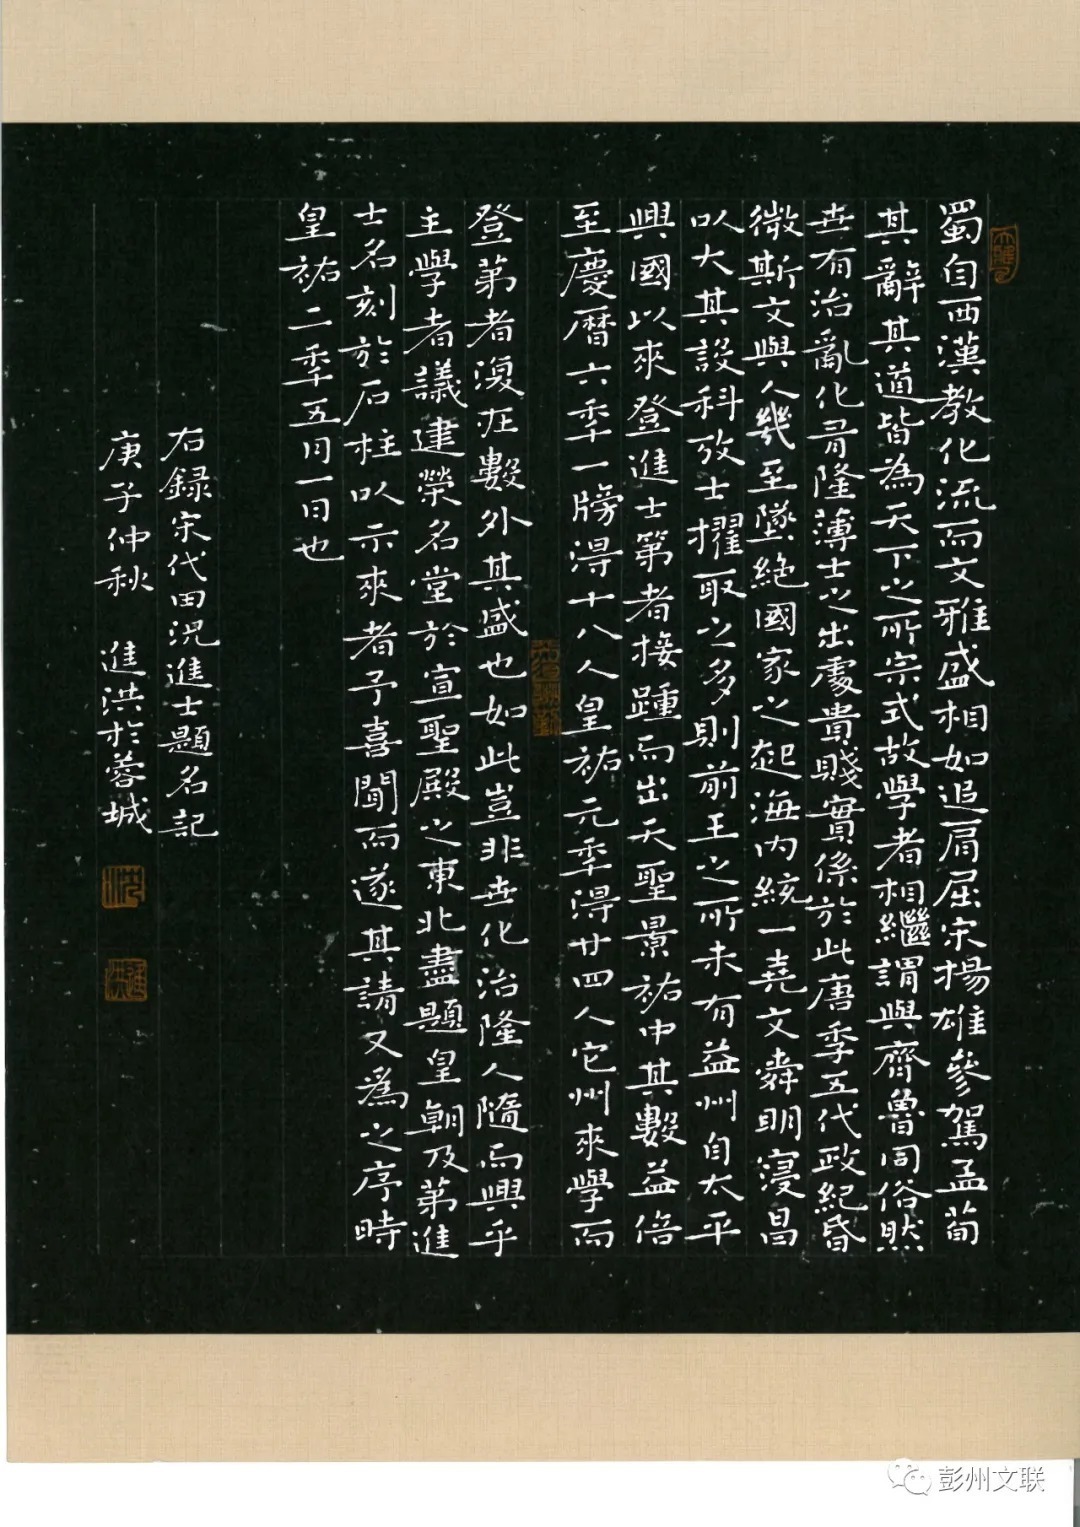 蜀自西漢教化流而文雅盛相如追肩屈宋揚雄參駕孟荀
其辭其道皆為天下之所宗式故學者相繼謂與齊魯同俗然
世有治亂化有隆薄士之出處貴賤實係於此唐季五代政紀昏
微斯文與人幾至墜絕國家之起海內統一堯文舜明寖昌
以大其設科攷士擢取之多則前王之所未有益州自太平
興國以來登進士第者接踵而出天聖景祐中其數益倍
至慶曆六季一牓得十八人皇祐元季得廿四人它州來學而
登第者復在數外其盛也如此豈非世化治隆人隨而興乎
主學者議建榮名堂於宣聖殿之東北盡題皇朝及第進
士名刻於石柱以示來者予喜聞而遂其請又為之序時
皇祐二季五月一日也
右録宋代田況進士題名記
庚子仲秋 進洪於蓉城
彭州文联